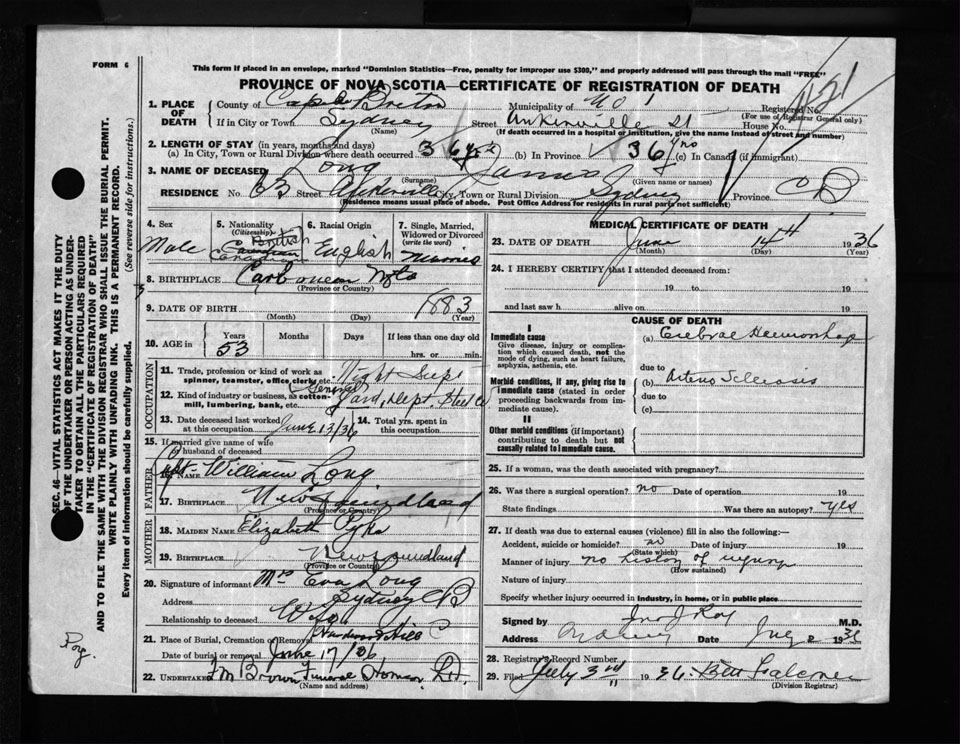 FORM 6
This form if placed in an envelope, marked "Dominion Statistics—Free, penalty for improper use $300," and properly addressed will pass through the mail "FREE"
PROVINCE OF NOVA SCOTIA—CERTIFICATE OF REGISTRATION OF DEATH
1. PLACE OF DEATH
County of Cape Breton Municipality of Registered No.
(For use of Registrar General only)
If in City or Town Sydney Street House No.
(Name) (If death occurred in a hospital or institution, give the name instead of street and number)
2. LENGTH OF STAY (in years, months and days)
(a) In City, Town or Rural Division where death occurred 36 yrs (b) In Province 36 yrs (c) In Canada (if immigrant)
3. NAME OF DECEASED Long James
(Surname) (Given name or names)
RESIDENCE No. 63 Street City, Town or Rural Division Sydney Province C B
(Residence means usual place of abode. Post Office Address for residents in rural parts not sufficient)
4. Sex 5. Nationality (Citizenship) 6. Racial Origin 7. Single, Married, Widowed or Divorced (write the word)
Male British Canadian English Married
8. BIRTHPLACE Carbonear Nfld
(Province or Country)
9. DATE OF BIRTH 1883
(Month) (Day) (Year)
10. AGE in Years Months Days If less than one day old
53 hrs. or min.
OCCUPATION
11. Trade, profession or kind of work as spinner, teamster, office clerk, etc. Night Supt
12. Kind of industry or business, as cotton-mill, lumbering, bank, etc. General Yard, Dept. Steel Co
13. Date deceased last worked at this occupation June 13/36
14. Total yrs. spent in this occupation
15. If married give name of wife or husband of deceased
FATHER
16. NAME Capt. William Long
17. BIRTHPLACE Newfoundland
(Province or Country)
MOTHER
18. MAIDEN NAME Elizabeth
19. BIRTHPLACE Newfoundland
(Province or Country)
20. Signature of informant Mrs Eva Long
Address Sydney C B
Relationship to deceased Wife
21. Place of Burial, Cremation or Removal Hardwood Hill
Date of burial or removal June 17/36
22. UNDERTAKER Brown Funeral Home
(Name and address)
MEDICAL CERTIFICATE OF DEATH
23. DATE OF DEATH June 14th 1936
(Month) (Day) (Year)
24. I HEREBY CERTIFY that I attended deceased from:
19 to 19
and last saw h alive on 19
CAUSE OF DEATH
I
Immediate cause
Give disease, injury or complication which caused death, not the mode of dying, such as heart failure, asphyxia, asthenia, etc.
(a) Cerebral Haemorrhage
due to
Morbid conditions, if any, giving rise to immediate cause (stated in order proceeding backwards from immediate cause).
(b) Arterio Sclerosis
due to
(c)
II
Other morbid conditions (if important) contributing to death but not causally related to immediate cause.
25. If a woman, was the death associated with pregnancy?
26. Was there a surgical operation? no Date of operation 19
State findings Was there an autopsy? yes
27. If death was due to external causes (violence) fill in also the following:
Accident, suicide or homicide? no Date of injury 19
(State which)
Manner of injury no history of injury
(How sustained)
Nature of injury
Specify whether injury occurred in industry, in home, or in public place
Signed by Jno J Roy M.D.
Address Sydney Date 1936
28. Registrar's Record Number
29. Filed July 3rd 1936
(Division Registrar)
SEC. 46—VITAL STATISTICS ACT MAKES IT THE DUTY OF THE UNDERTAKER OR PERSON ACTING AS UNDERTAKER TO OBTAIN ALL THE PARTICULARS REQUIRED IN THE "CERTIFICATE OF REGISTRATION OF DEATH"
AND TO FILE THE SAME WITH THE DIVISION REGISTRAR WHO SHALL ISSUE THE BURIAL PERMIT.
WRITE PLAINLY WITH UNFADING INK. THIS IS A PERMANENT RECORD.
Every item of information should be carefully supplied. (See reverse side for instructions.)